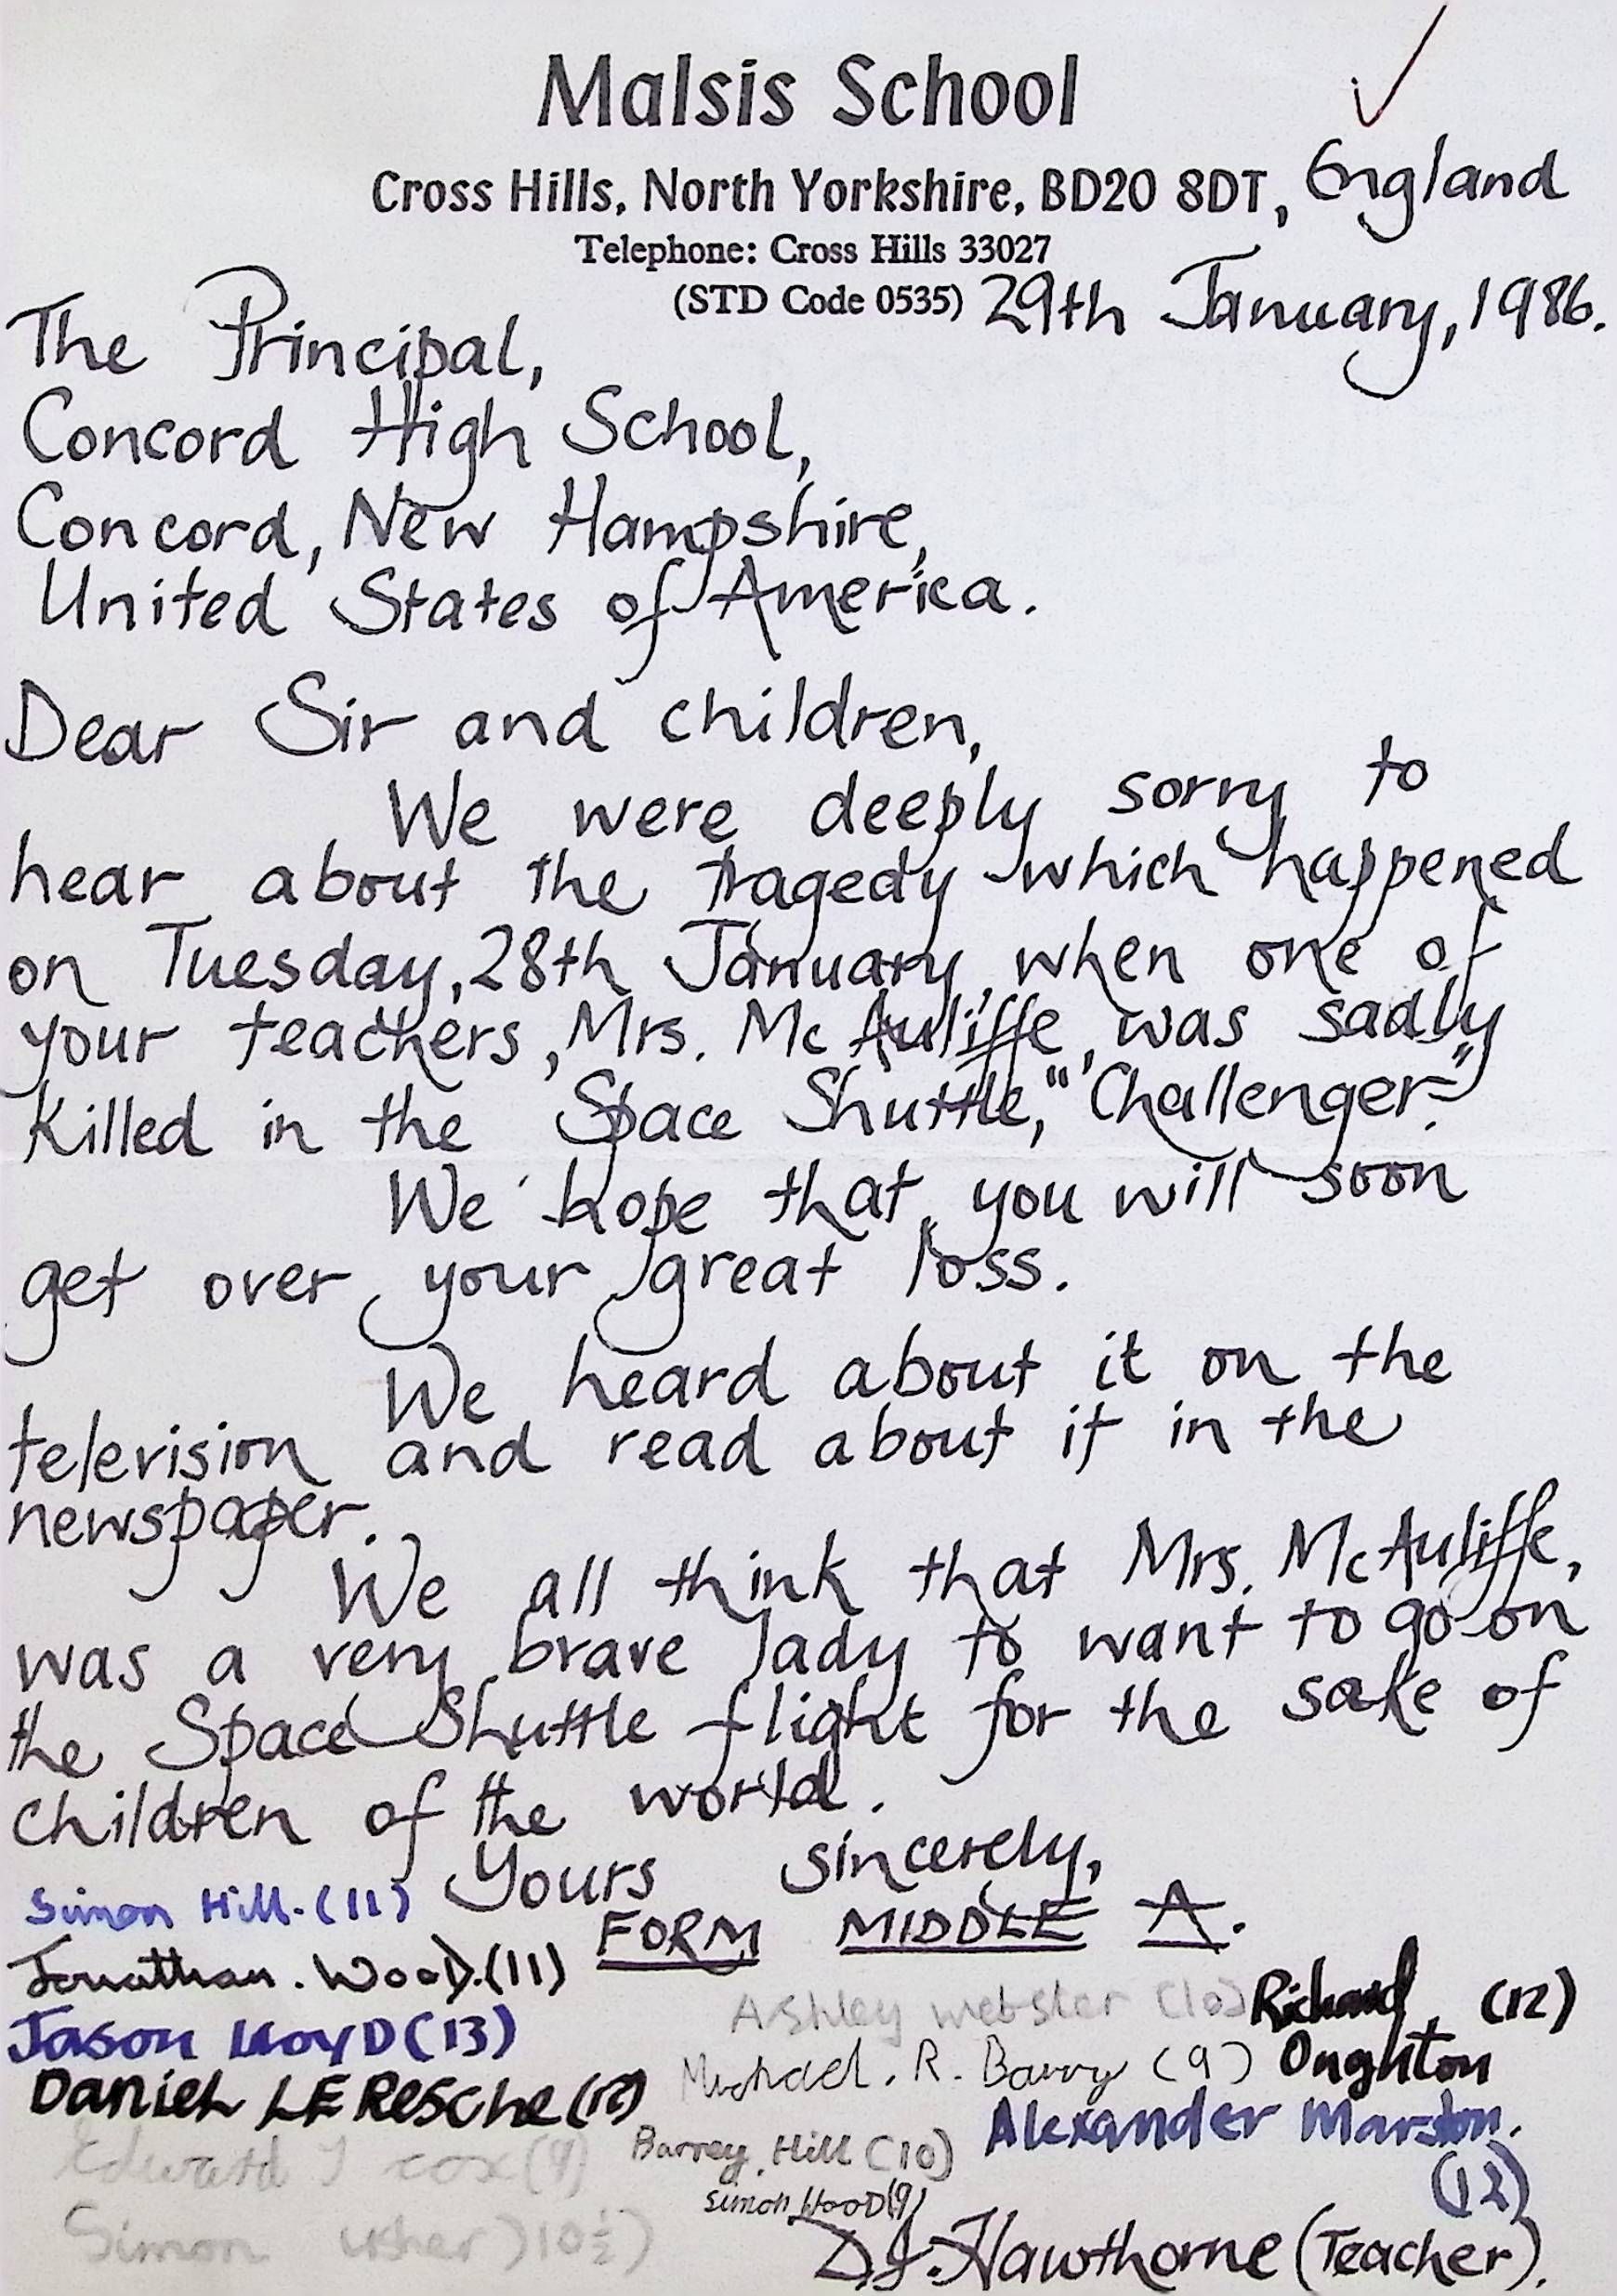 Malsis School
Cross Hills, North Yorkshire, BD20 8DT, England
Telephone: Cross Hills 33027
(STD Code 0535) 29th January, 1986.
The Principal,
Concord High School,
Concord, New Hampshire,
United States of America.
Dear Sir and children,
We were deeply sorry to
hear about the tragedy which happened
on Tuesday, 28th January, when one of
your teachers, Mrs. McAuliffe, was sadly
killed in the Space Shuttle, "Challenger."
We hope that you will soon
get over your great loss.
We heard about it on the
television and read about it in the
newspaper.
We all think that Mrs. McAuliffe,
was a very brave lady to want to go on
the Space Shuttle flight for the sake of
children of the world.
Yours sincerely,
FORM MIDDLE A.
Simon Hill. (11)
Jonathan. Wood. (11)
Jason LloyD (13)
Daniel LE Resche (12)
Edward J cox (9)
Simon usher) 10½)
Ashley webster (10)
Michael. R. Barry (9)
Barrey. Hill (10)
Simon HooD (9)
Richard (12)
Oughton
Alexander Marston.
(12)
D.J. Hawthorne (Teacher).